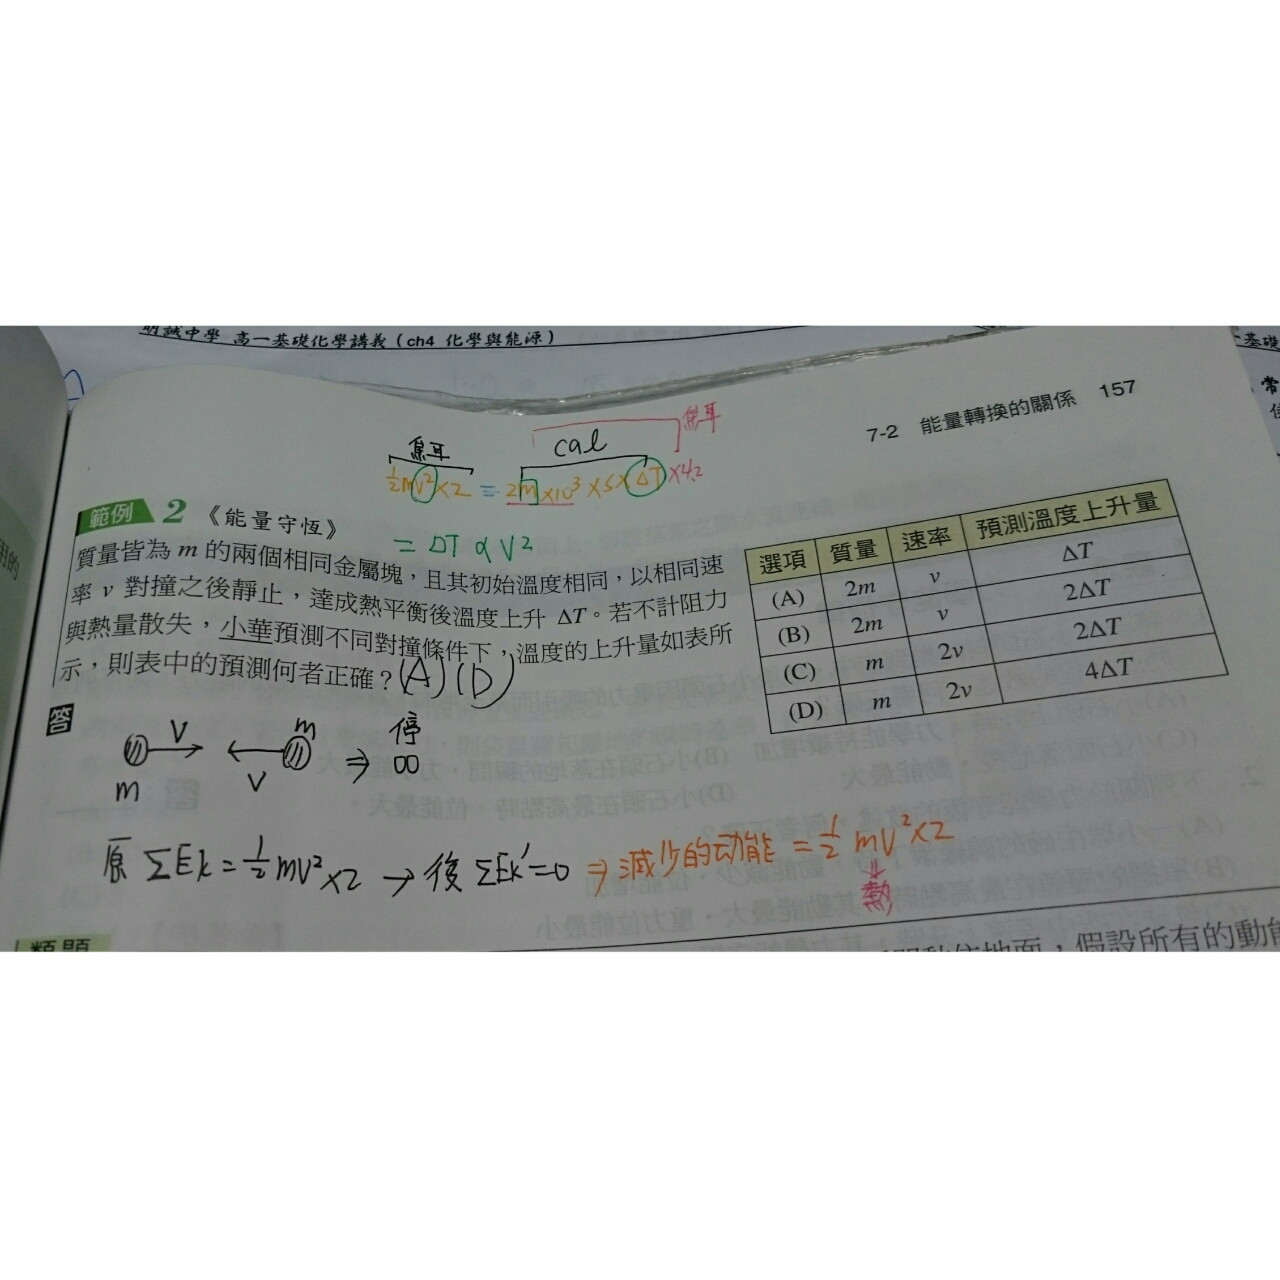 明誠中學 高一基礎化學講義（ch4 化學與能源）
基礎
常
7-2 能量轉換的關係 157
焦耳 cal 焦耳
½mv²×2 = 2m×10³×S×ΔT×4.2
= ΔT∝V²
範例 2 《能量守恆》
質量皆為 m 的兩個相同金屬塊，且其初始溫度相同，以相同速
率 v 對撞之後靜止，達成熱平衡後溫度上升 ΔT。若不計阻力
與熱量散失，小華預測不同對撞條件下，溫度的上升量如表所
示，則表中的預測何者正確？(A)(D)
選項 質量 速率 預測溫度上升量
(A) 2m v ΔT
(B) 2m v 2ΔT
(C) m 2v 2ΔT
(D) m 2v 4ΔT
答
m V V m ⇒ 停
原 ΣEk=½mv²×2 → 後 ΣEk'=0 ⇒ 減少的动能 = ½mv²×2
熱
類題
用的
，假設所有的動能